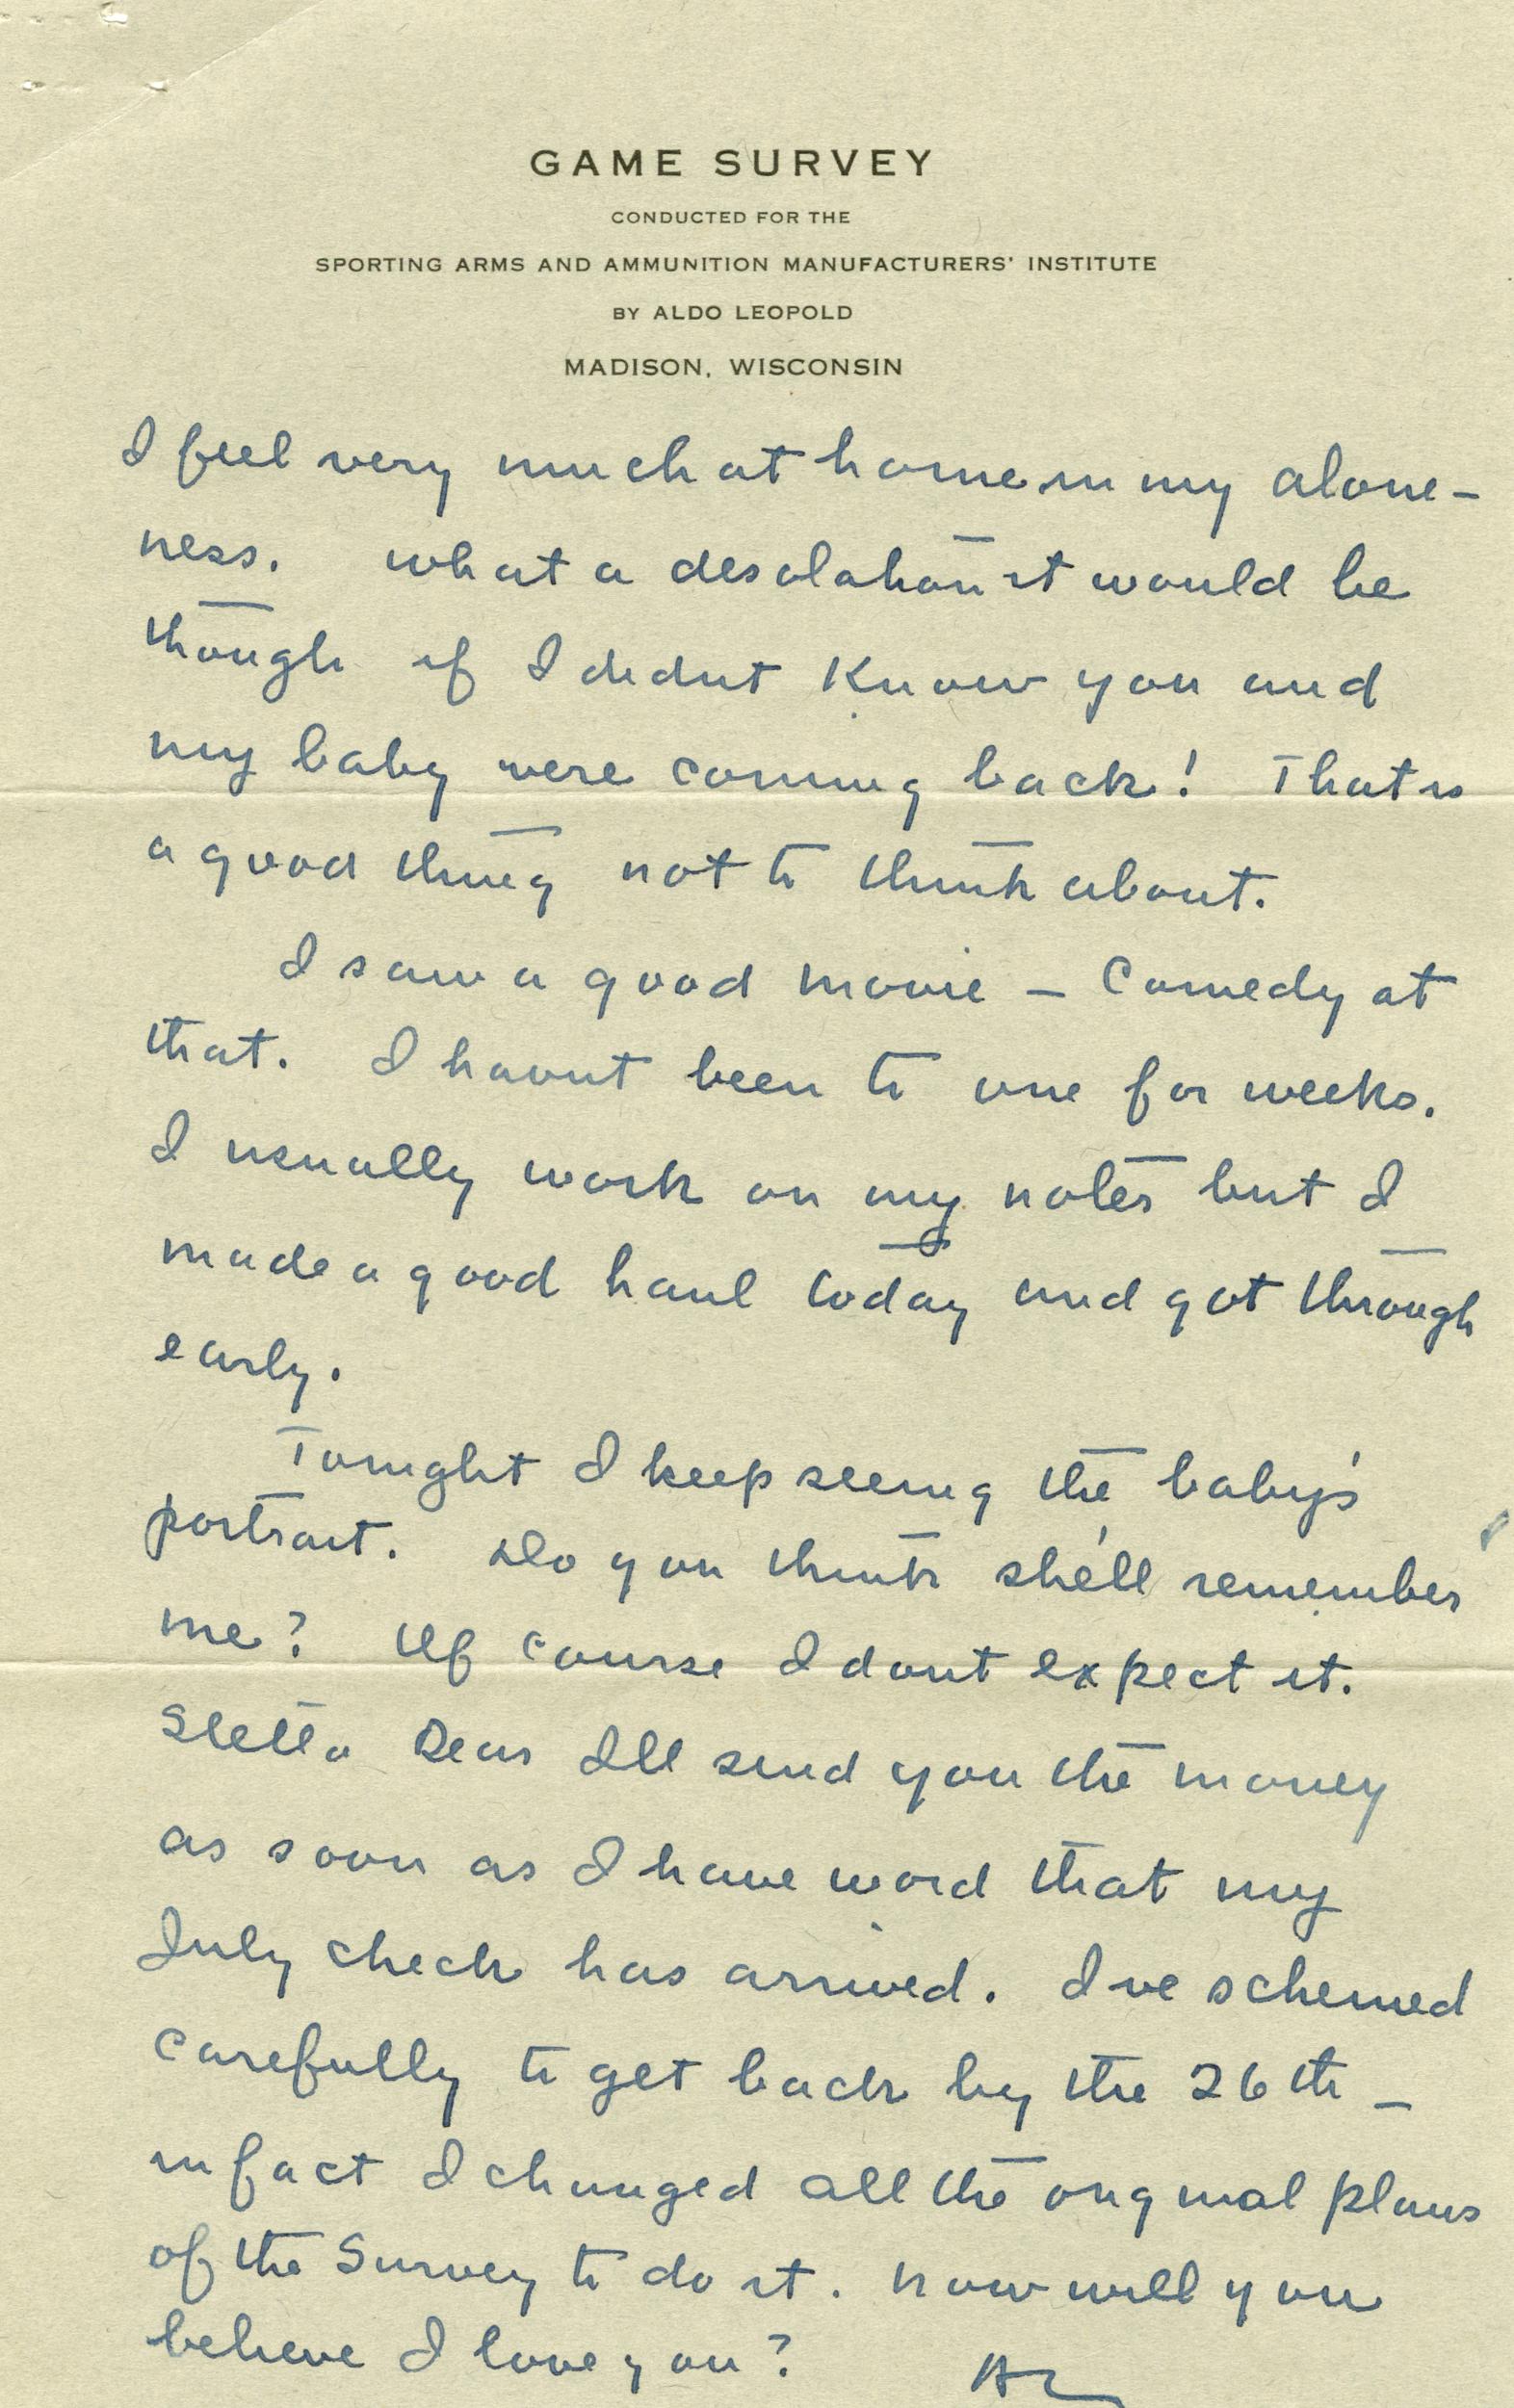 GAME SURVEY
CONDUCTED FOR THE
SPORTING ARMS AND AMMUNITION MANUFACTURERS' INSTITUTE
BY ALDO LEOPOLD
MADISON, WISCONSIN
I feel very much at home in my alone-
ness. What a desolation it would be
though if I didnt know you and
my baby were coming back! That is
a good thing not to think about.
I saw a good movie – Comedy at
that. I havnt been to one for weeks.
I usually work on my notes but I
made a good haul today and got through
early.
Tonight I keep seeing the baby's
portrait. Do you think she'll remember
me? Of course I dont expect it.
Stella Dear Ill send you the money
as soon as I have word that my
July check has arrived. Ive schemed
carefully to get back by the 26th –
in fact I changed all the original plans
of the Survey to do it. Now will you
believe I love you?
AL